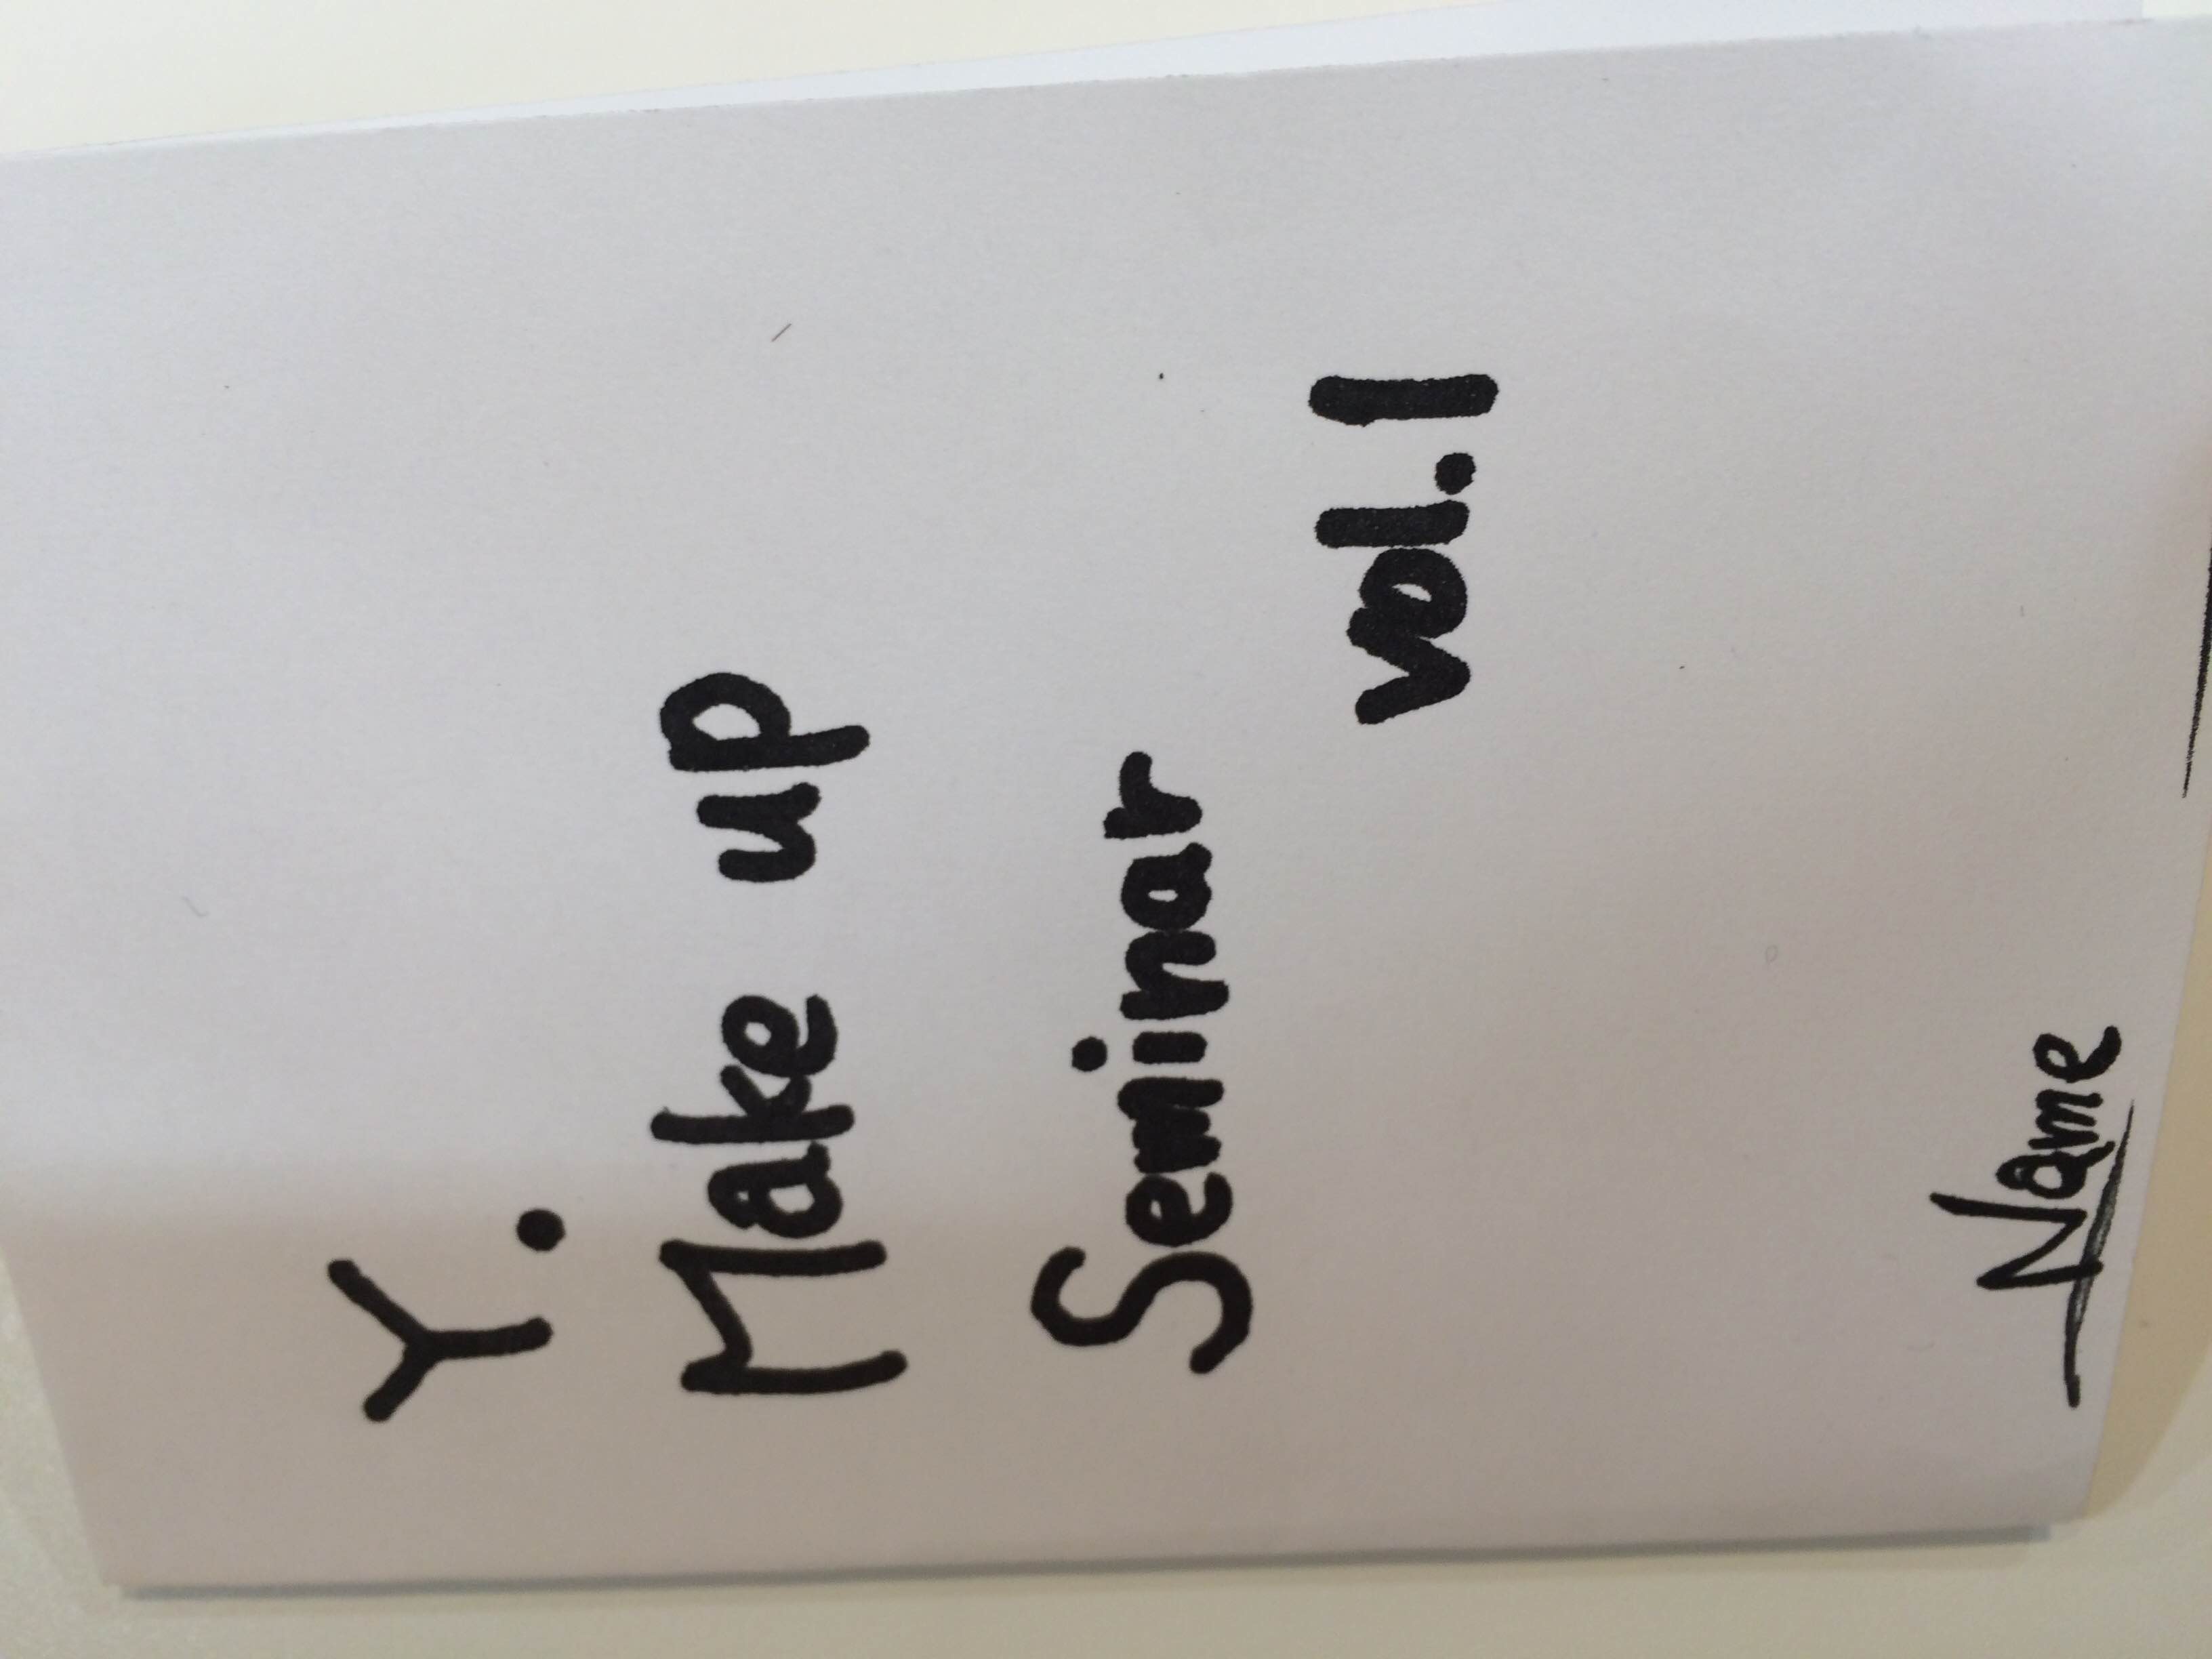 Y.
Make up
Seminar
vol.1
Name